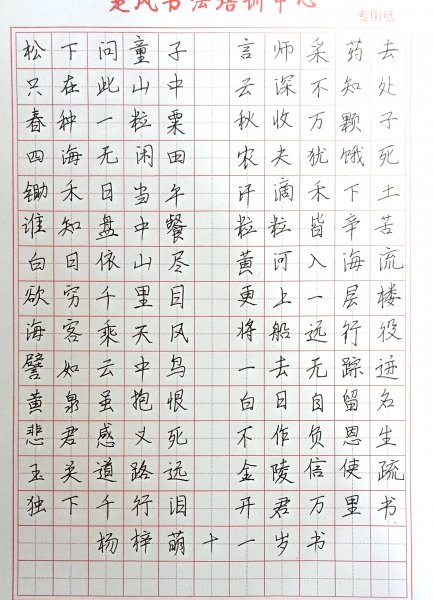 楚风书法培训中心
专用纸
松下问童子 言师采药去
只在此山中 云深不知处
春种一粒粟 秋收万颗子
四海无闲田 农夫犹饿死
锄禾日当午 汗滴禾下土
谁知盘中餐 粒粒皆辛苦
白日依山尽 黄河入海流
欲穷千里目 更上一层楼
海客乘天风 将船远行役
譬如云中鸟 一去无踪迹
黄泉虽抱恨 白日自留名
悲君感义死 不作负恩生
玉关道路远 金陵信使疏
独下千行泪 开君万里书
杨梓萌十一岁书